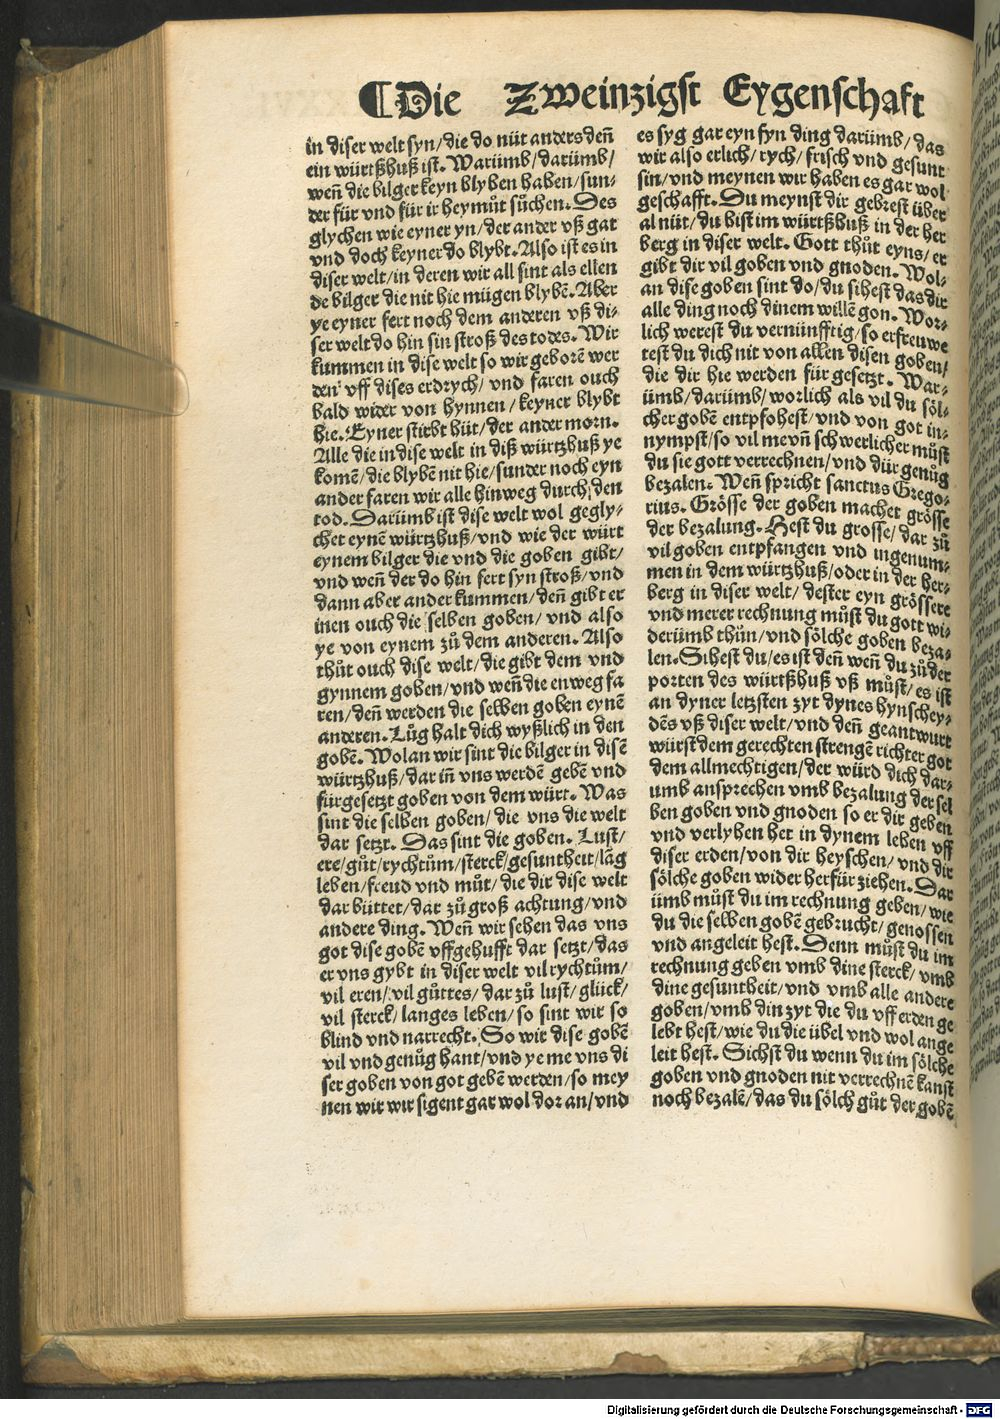 ¶Die Zweinzigst Eygenschaft
in diser welt syn/die do nüt anders deñ
ein würtßhuß ist. Warumb/darumb/
weñ die bilger keyn blyben haben/sun-
der für vnd für ir heymůt sůchen. Des
glychen wie eyner yn/der ander vß gat
vnd doch keyner do blybt. Also ist es in
diser welt/in deren wir all sint als ellen
de bilger die nit hie mügen blybē. Aber
ye eyner fert noch dem anderen vß di-
ser welt do hin sin stroß des todes. Wir
kummen in dise welt so wir geborē wer
den vff dises erdrych/ vnd faren ouch
bald wider von hynnen/keyner blybt
hie. Eyner stirbt hüt/der ander morn.
Alle die in dise welt in diß würtzhuß ye
komē/die blybē nit hie/sunder noch eyn
ander faren wir alle hinweg durch den
tod. Darümb ist dise welt wol gegly-
chet eynē würtzhuß/vnd wie der würt
eynem bilger die vnd die goben gibt/
vnd weñ der do hin fert syn stroß/vnd
dann aber ander kummen/deñ gibt er
inen ouch die selben goben/ vnd also
ye von eynem zů dem anderen. Also
thůt ouch dise welt/die gibt dem vnd
gynnem goben/vnd weñ die enweg fa
ren/deñ werden die selben goben eynē
anderen. Lůg halt dich wyßlich in den
gobē. Wolan wir sint die bilger in disē
würtzhuß/dar iñ vns werdē gebē vnd
fürgesetzt goben von dem würt. Was
sint die selben goben/die vns die welt
dar setzt. Das sint die goben. Lust/
ere/gůt/rychtům/sterck/gesuntheit/lāg
leben/freud vnd můt/die dir dise welt
dar büttet/dar zů groß achtung/vnd
andere ding. Weñ wir sehen das vns
got dise gobē vffgehufft dar setzt/das
er vns gybt in diser welt vil rychtům/
vil eren/vil gůttes/dar zů lust/glück/
vil sterck/langes leben/so sint wir so
blind vnd narrecht. So wir dise gobē
vil vnd genůg hant/vnd ye me vns di
ser goben von got gebē werden/so mey
nen wir wir sigent gar wol dor an/vnd
es syg gar eyn fyn ding darümb/das
wir also erlich/rych/frisch vnd gesunt
sin/vnd meynen wir haben es gar wol
geschafft. Du meynst dir gebrest über
al nüt/du bist im würtßhuß in der her
berg in diser welt. Gott thůt eyns/er
gibt dir vil goben vnd gnoden. Wol-
an dise goben sint do/du sihest das dir
alle ding noch dinem willē gon. Wor-
lich werest du vernünfftig/so erfreuwe
test du dich nit von allen disen goben/
die dir hie werden für gesetzt. War-
ümb/darümb/worlich als vil du söl-
cher gobē entpfohest/vnd von got in-
nympst/so vil meñ schwerlicher můst
du sie gott verrechnen/vnd dür genůg
bezalen. Weñ spricht sanctus Grego-
rius. Grösse der goben machet grösse
der bezalung. Hest du grosse/dar zů
vil goben entpfangen vnd ingenum-
men in dem würtzhuß/oder in der her-
berg in diser welt/dester eyn grössere
vnd merer rechnung můst du gott wi-
derümb thůn/vnd sölche goben beza-
len. Sihest du/es ist deñ weñ du zů der
porten des würtßhuß vß můst/es ist
an dyner letzsten zyt dynes hynschey-
dēs vß diser welt/vnd deñ geantwurt
würst dem gerechten strengē richter got
dem allmechtigen/der würd dich dar-
umb ansprechen vmb bezalung der sel
ben goben vnd gnoden so er dir geben
vnd verlyben het in dynem leben vff
diser erden/von dir heyschen/vnd dir
sölche goben wider herfür ziehen. Dar
ümb můst du im rechnung geben/wie
du die selben gobē gebrucht/genossen
vnd angeleit hest. Denn můst du im
rechnung geben vmb dine sterck/vmb
dine gesuntheit/vnd vmb alle andere
goben/vmb din zyt die du vff erden ge
lebt hest/wie du die übel vnd wol ange
leit hest. Sichst du wenn du im sölche
goben vnd gnoden nit verrechnē kanst
noch bezalē/das du sölch gůt der gobē
Digitalisierung gefördert durch die Deutsche Forschungsgemeinschaft - DFG